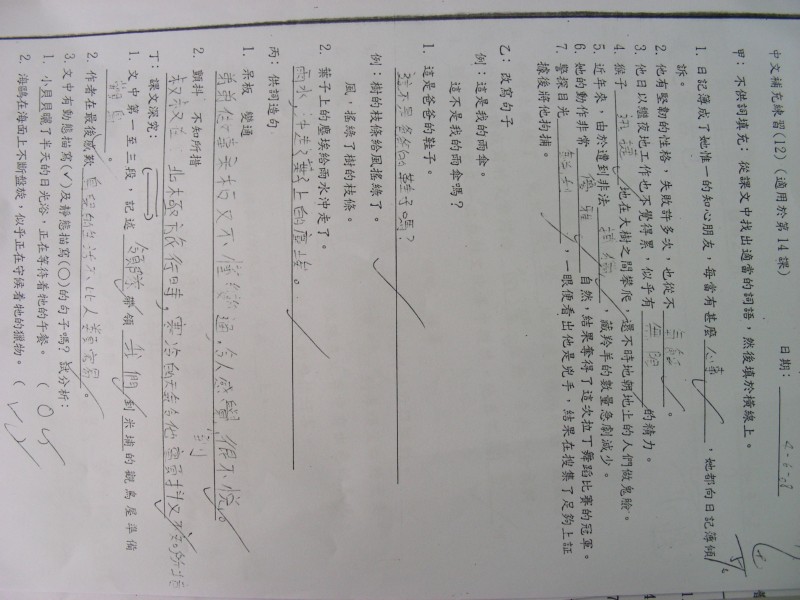 中文補充練習(12)(適用於第14課) 日期: 4-6-08
甲:不供詞填充:從課文中找出適當的詞語,然後填於橫線上。
1. 日記簿成了她惟一的知心朋友,每當有甚麼心事,她都向日記簿傾
訴。
2. 他有堅韌的性格,失敗許多次,也從不言輸。
3. 他日以繼夜地工作也不覺得累,似乎有無限的精力。
4. 猴子地在大樹之間攀爬,還不時地朝地上的人們做鬼臉。
5. 近年來,由於遭到非法,藏羚羊的數量急劇減少。
6. 她的動作非常優雅自然,結果奪得了這次拉丁舞蹈比賽的冠軍。
7. 警探目光銳利,一眼便看出他是兇手,結果在搜集了足夠上証
據後將他拘捕。
乙:改寫句子
例:這是我的雨傘。
這不是我的雨傘嗎?
1. 這是爸爸的鞋子。
這不是爸爸的鞋子嗎?
例:樹的枝條給風搖綠了。
風,搖綠了樹的枝條。
2. 葉子上的塵埃給雨水沖走了。
雨水,沖走葉子上的塵埃。
丙:供詞造句
1. 呆板 變通
弟弟做事呆板又不懂變通,令人感到很不悅。
2. 顫抖 不知所措
叔叔在北極旅行時,寒冷的天氣令他顫抖又不知所措
丁:課文深究:
1. 文中第一至三段,記述領隊帶領我們到米埔的觀鳥屋準備
觀鳥。
2. 作者在最後感歎鳥兒的生活比人類寫。
3. 文中有動態描寫(✓)及靜態描寫(○)的句子嗎?試分析:
1. 小貝貝曬了半天的日光浴,正在等待着牠的午餐。(○)
2. 海鷗在海面上不斷盤旋,似乎正在守候着牠的獵物。(✓)